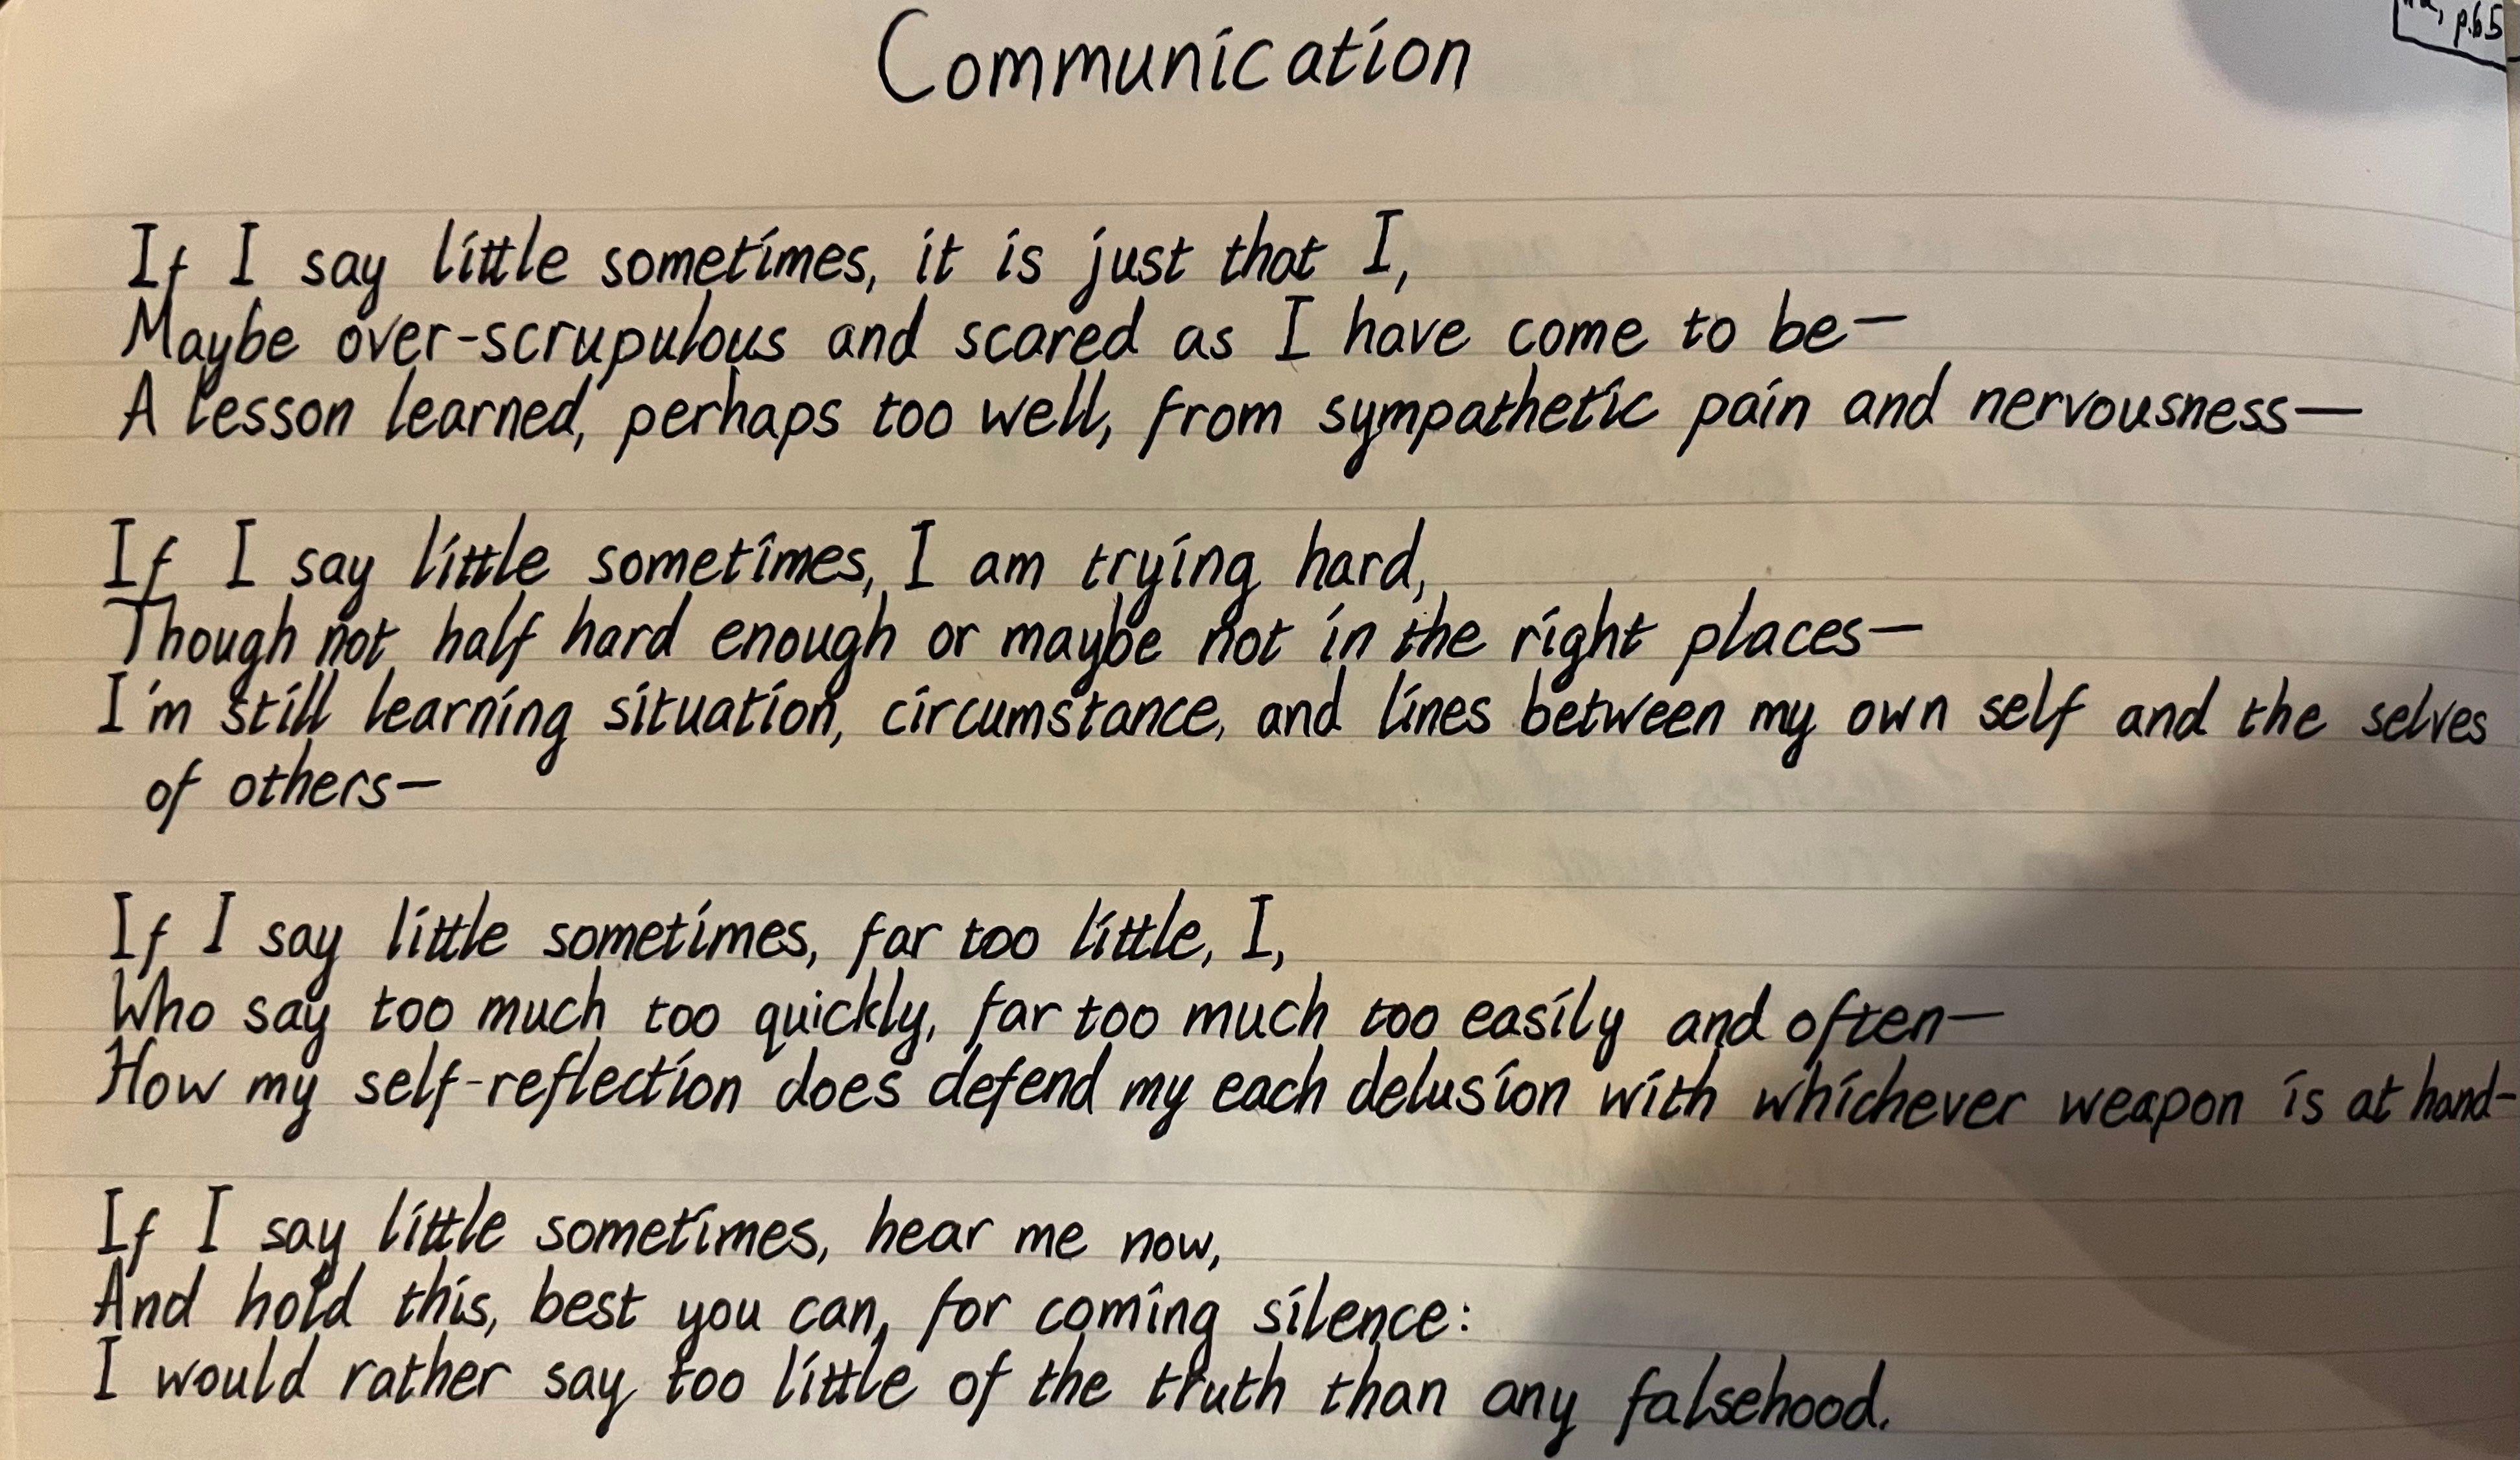 p.65
Communication
If I say little sometimes, it is just that I,
Maybe over-scrupulous and scared as I have come to be—
A lesson learned, perhaps too well, from sympathetic pain and nervousness—
If I say little sometimes, I am trying hard,
Though not half hard enough or maybe not in the right places—
I'm still learning situation, circumstance, and lines between my own self and the selves
of others—
If I say little sometimes, far too little, I,
Who say too much too quickly, far too much too easily and often—
How my self-reflection does defend my each delusion with whichever weapon is at hand-
If I say little sometimes, hear me now,
And hold this, best you can, for coming silence:
I would rather say too little of the truth than any falsehood.